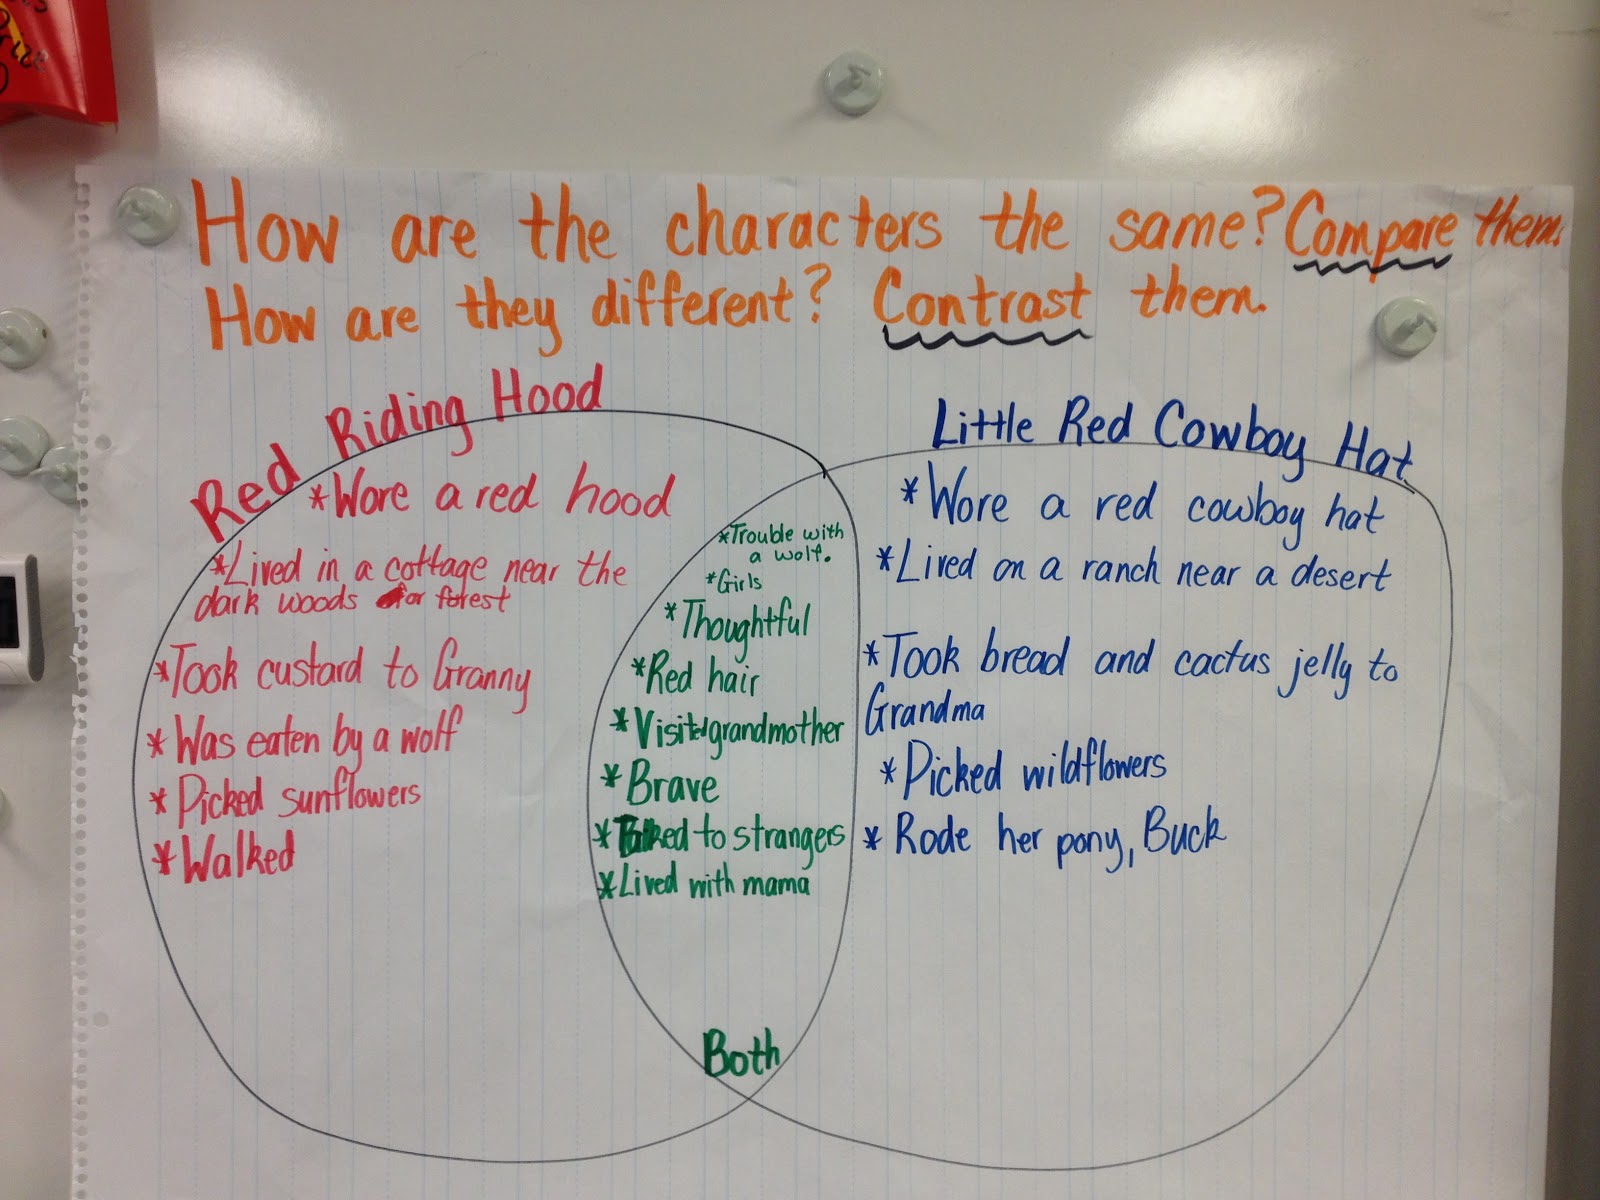 How are the characters the same? Compare them.
How are they different? Contrast them.
Red Riding Hood
*Wore a red hood
*Lived in a cottage near the
dark woods or forest
*Took custard to Granny
*Was eaten by a wolf
*Picked sunflowers
*Walked
*Trouble with
a wolf.
*Girls
*Thoughtful
*Red hair
*Visited grandmother
*Brave
*Talked to strangers
*Lived with mama
Both
Little Red Cowboy Hat
*Wore a red cowboy hat
*Lived on a ranch near a desert
*Took bread and cactus jelly to
Grandma
*Picked wildflowers
*Rode her pony, Buck